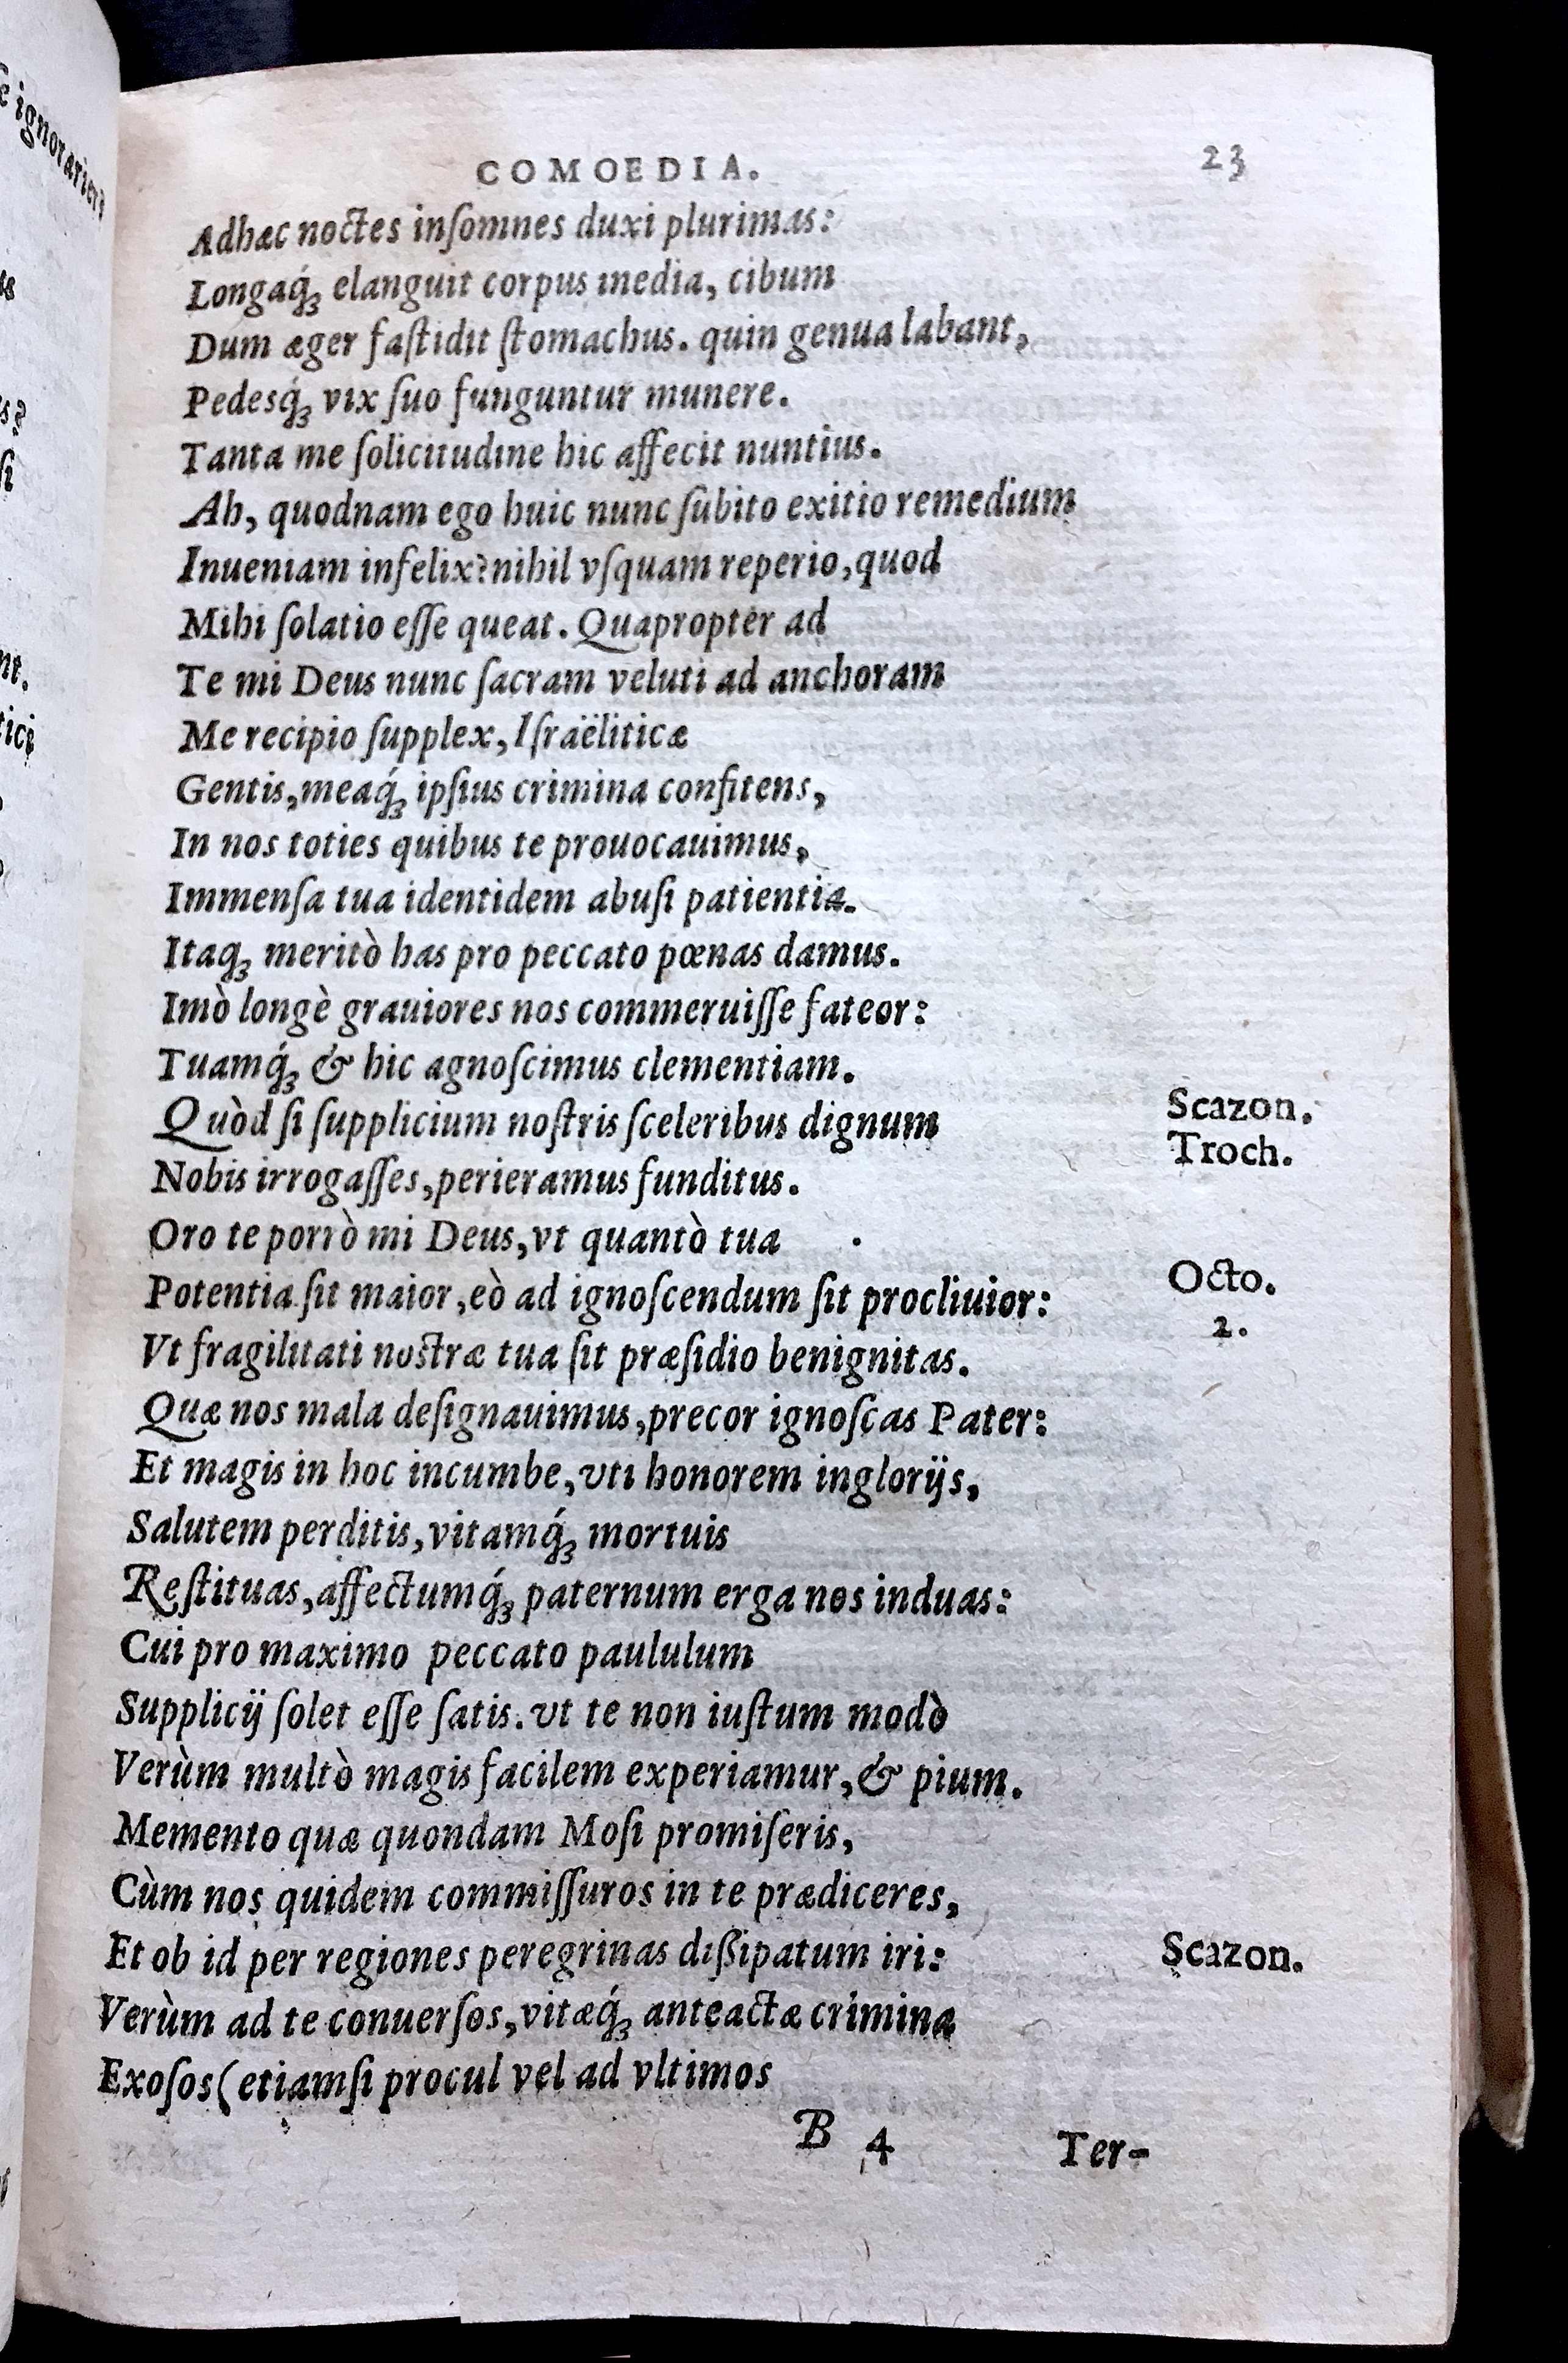 COMOEDIA. 23
Adhæc noctes inſomnes duxi plurimas:
Longaq́ꝫ elanguit corpus inedia, cibum
Dum æger faſtidit ſtomachus. quin genua labant,
Pedesq́ꝫ vix ſuo funguntur munere.
Tanta me ſolicitudine hic affecit nuntius.
Ah, quodnam ego huic nunc ſubito exitio remedium
Inueniam infelix? nihil vſquam reperio, quod
Mihi ſolatio eſſe queat. Quapropter ad
Te mi Deus nunc ſacram veluti ad anchoram
Me recipio ſupplex, Iſraëliticæ
Gentis, meaq́ꝫ ipſius crimina confitens,
In nos toties quibus te prouocauimus,
Immenſa tua identidem abuſi patientia.
Itaqꝫ meritò has pro peccato pœnas damus.
Imò longè grauiores nos commeruiſſe fateor:
Tuamq́ꝫ & hic agnoſcimus clementiam.
Quòd ſi ſupplicium noſtris ſceleribus dignum
Scazon.
Nobis irrogaſſes, perieramus funditus.
Troch.
Oro te porrò mi Deus, vt quantò tua
Potentia ſit maior, eò ad ignoſcendum ſit procliuior:
Octo.
2.
Vt fragilitati noſtræ tua ſit præſidio benignitas.
Quæ nos mala deſignauimus, precor ignoſcas Pater:
Et magis in hoc incumbe, vti honorem inglorijs,
Salutem perditis, vitamq́ꝫ mortuis
Reſtituas, affectumq́ꝫ paternum erga nos induas:
Cui pro maximo peccato paululum
Supplicij ſolet eſſe ſatis. vt te non iuſtum modò
Verùm multò magis facilem experiamur, & pium.
Memento quæ quondam Moſi promiſeris,
Cùm nos quidem commiſſuros in te prædiceres,
Et ob id per regiones peregrinas diſsipatum iri:
Scazon.
Verùm ad te conuerſos, vitæq́ꝫ anteactæ crimina
Exoſos (etiamſi procul vel ad vltimos
B 4 Ter-